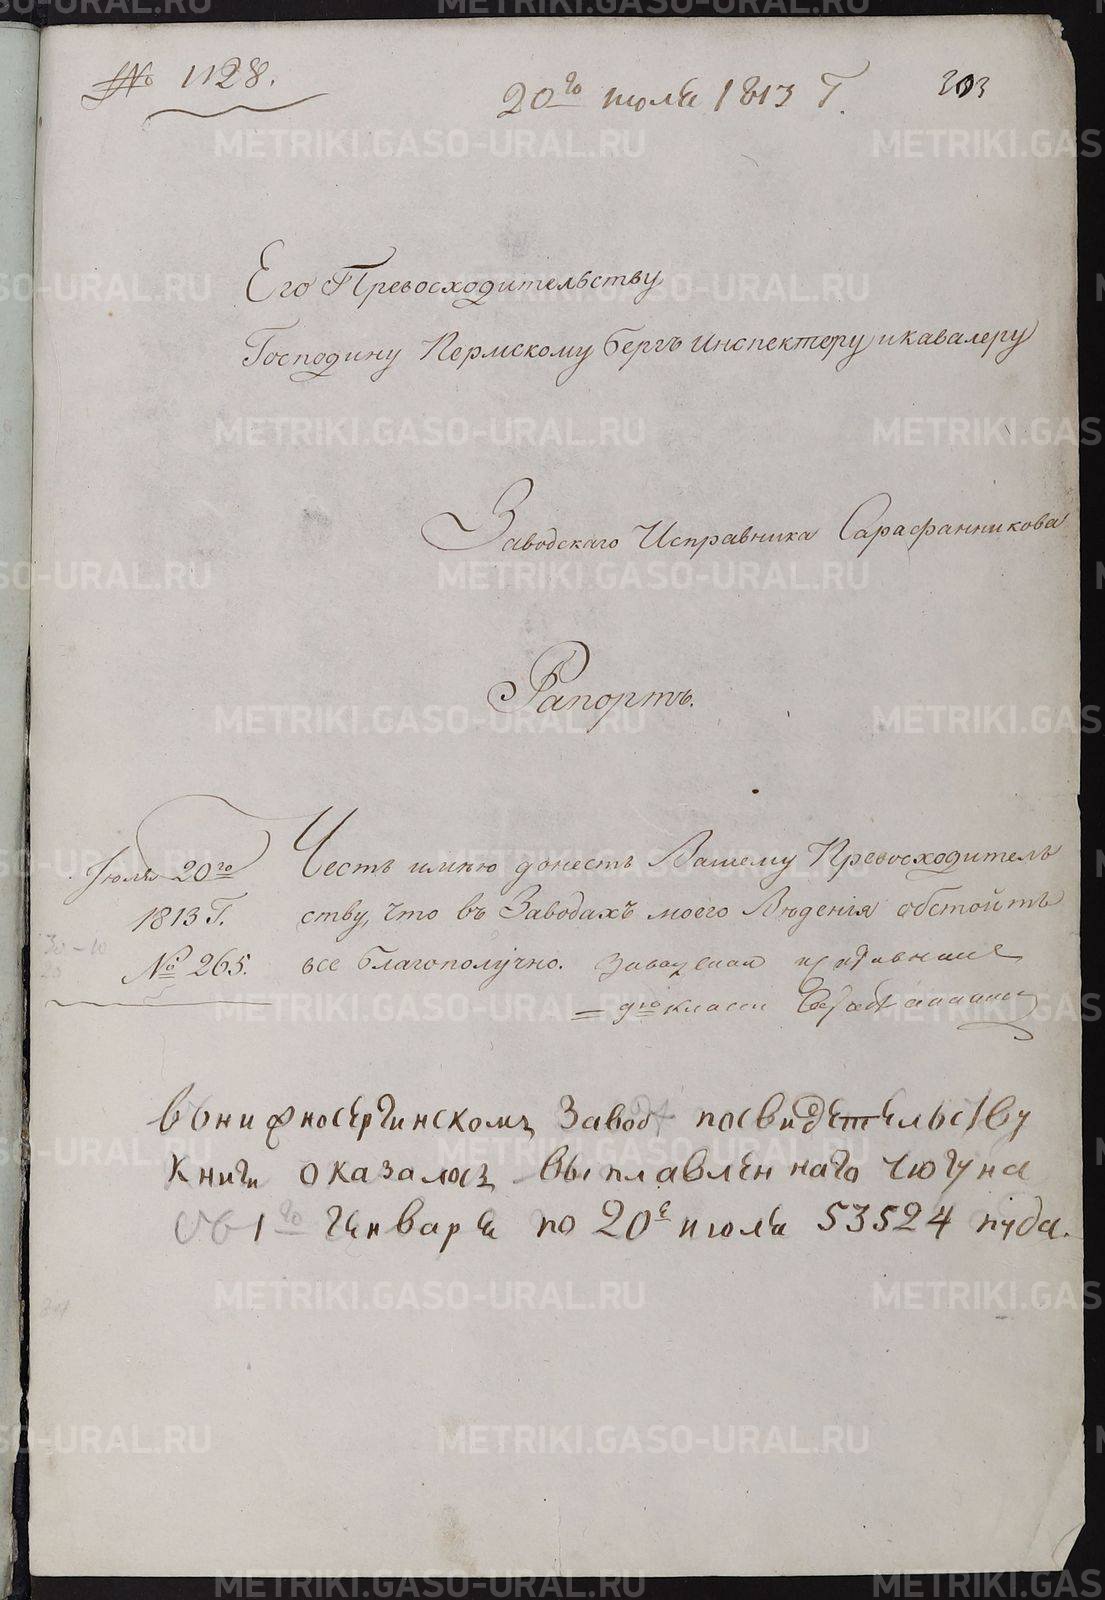 № 1128.
20го июля 1813 Г.
Его Превосходительству
Господину Пермскому бергъ инспектеру и кавалеру
Заводскаго Исправника Сарафанникова
Рапортъ.
Июля 20го
1813 Г.
№ 265.
Честь имѣю донесть Вашему Превосходитель
ству, что въ Заводахъ моего Вѣдения обстоитъ
все благополучно. Заводской исправникъ
9го класса
вънифносергинскомъ Заводѣ посвидетельству
книги оказалось выплавленнаго чюгуна
съ 1го генваря по 20е июля 53524 пуда.
METRIKI.GASO-URAL.RU